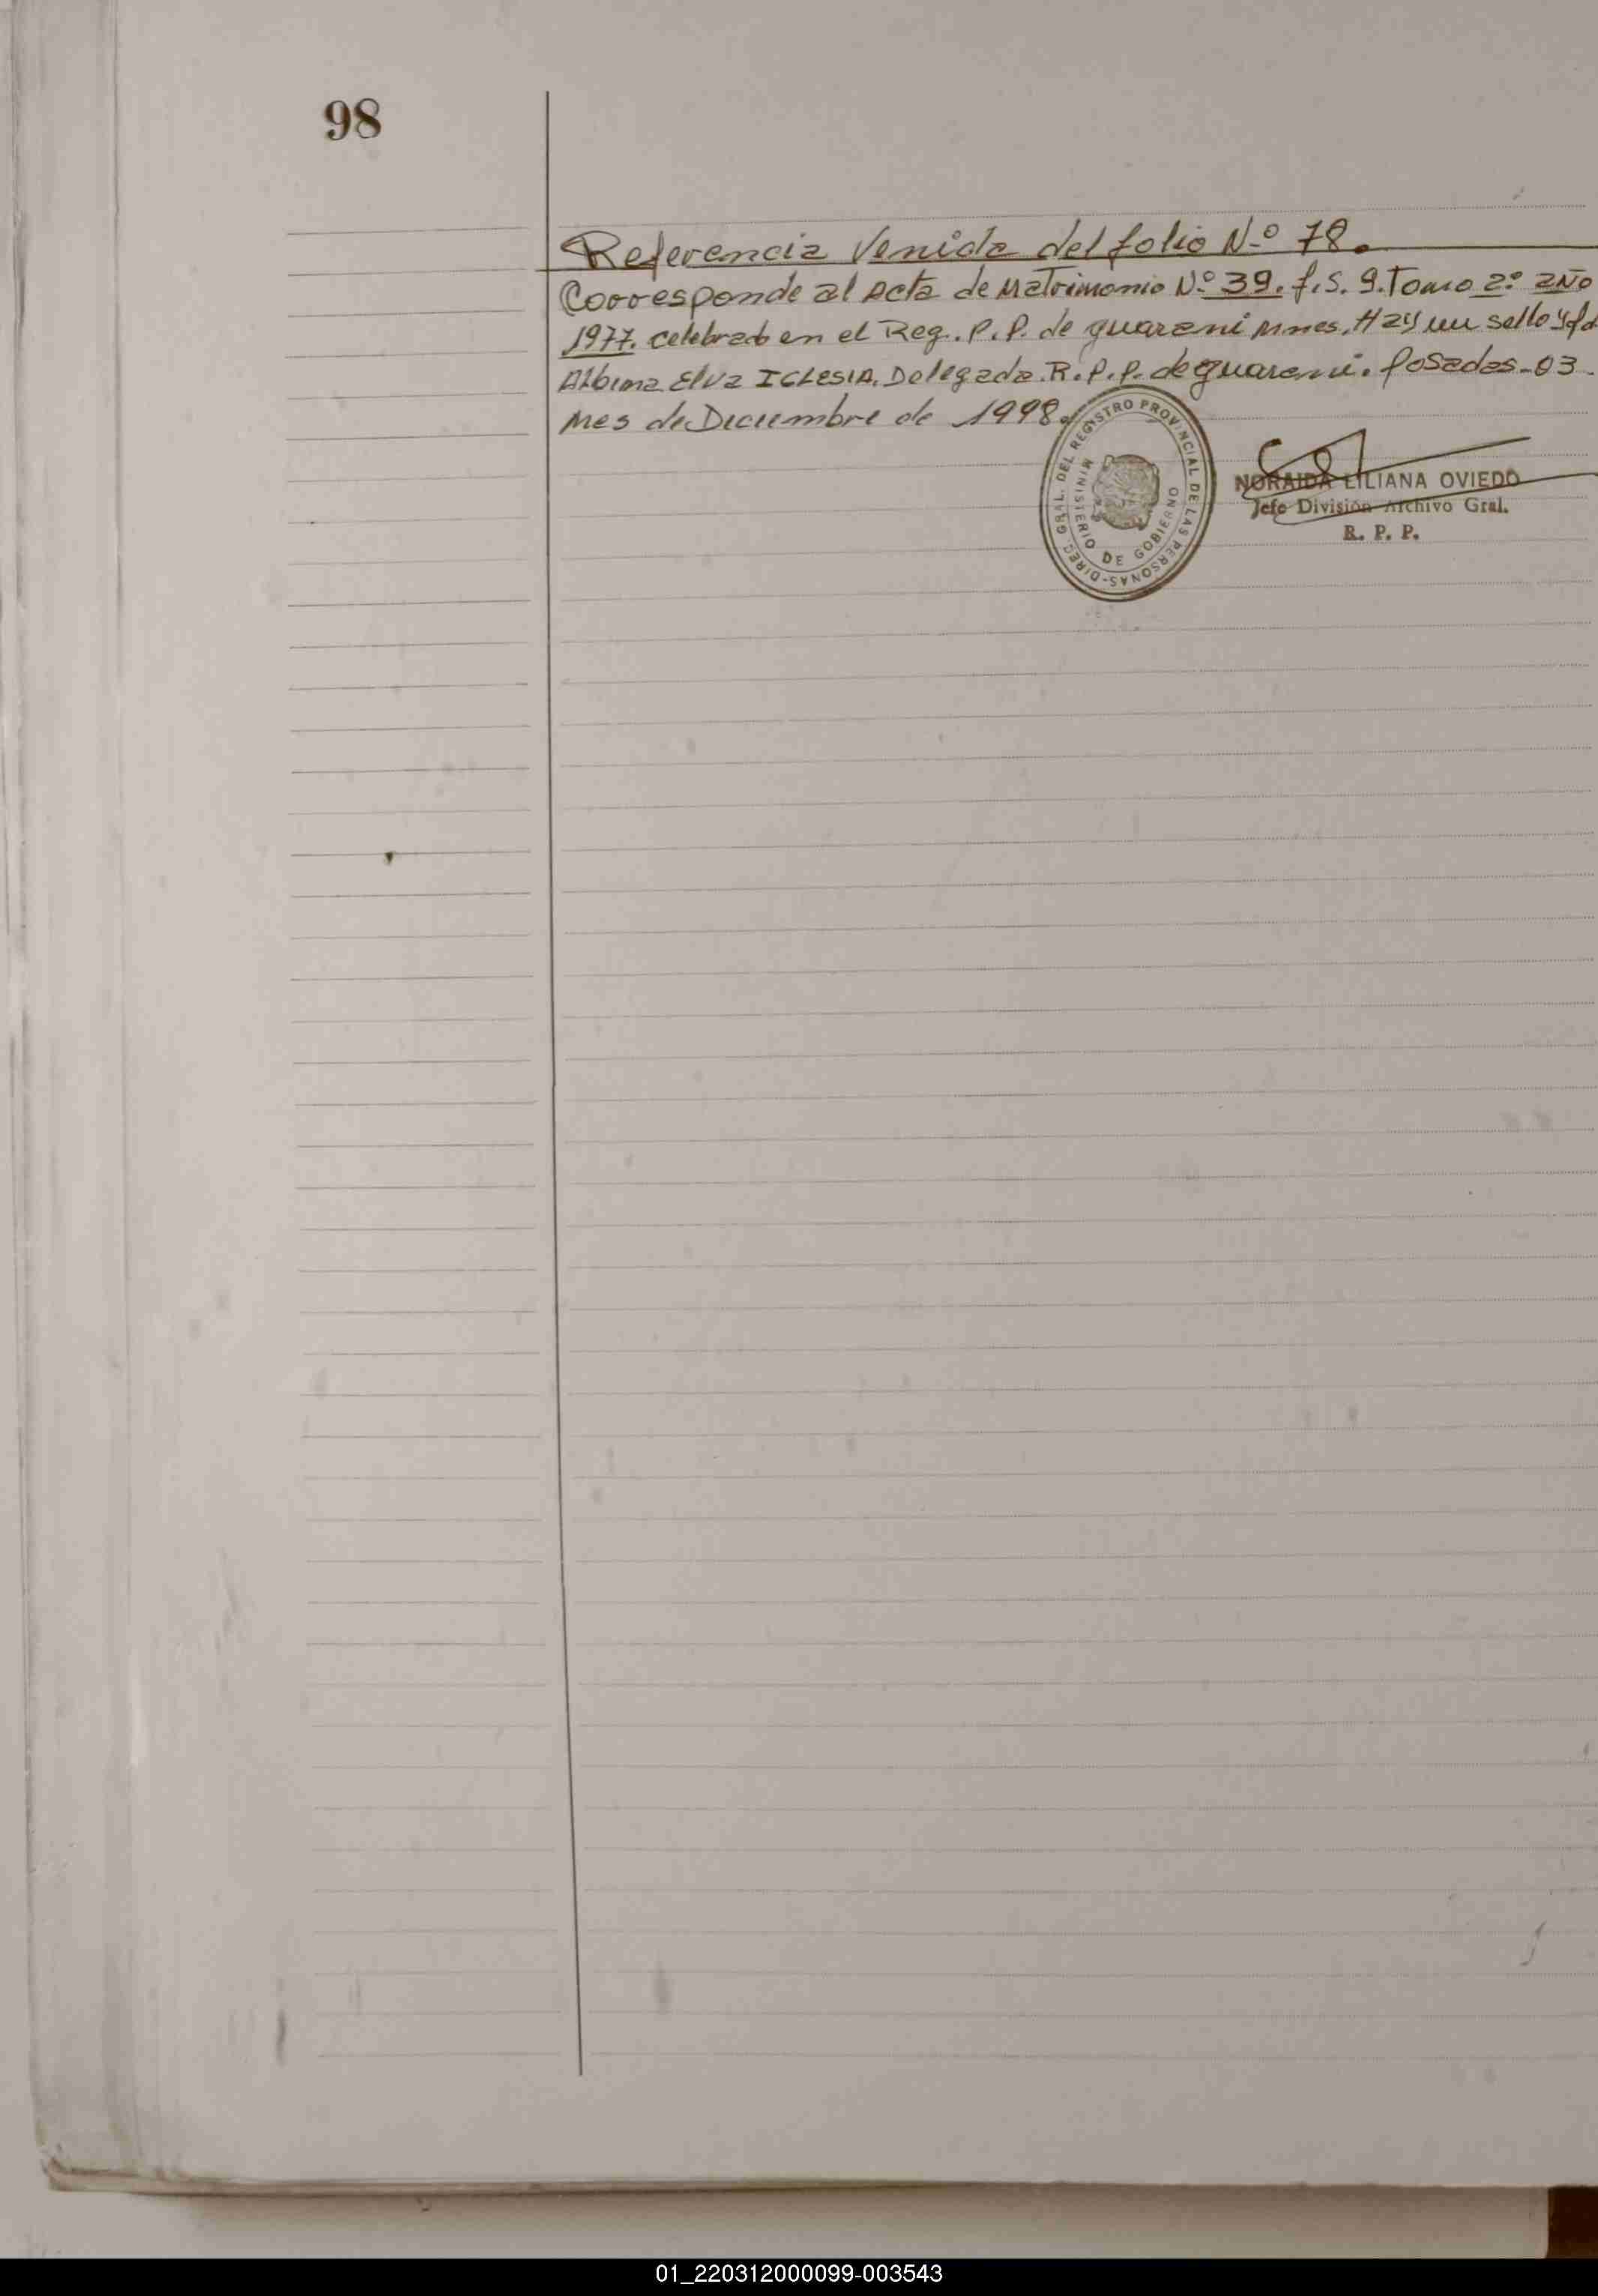 98
Referencia Venida del folio N-º 78.
Corresponde al Acta de Matrimonio N.º 39. f.s. 9. Tomo 2º año
1977. celebrado en el Reg. P. P. de guarani Mnes. Hay un sello y fd
Albina Elva IGLESIA. Delegada. R. P. P. de guarani. Posadas-03-
Mes de Diciembre de 1998.
DIREC. GRAL. DEL REGISTRO PROVINCIAL DE LAS PERSONAS-
MINISTERIO DE GOBIERNO
NORAIDA LILIANA OVIEDO
Jefe División Archivo Gral.
R. P. P.
01_220312000099-003543